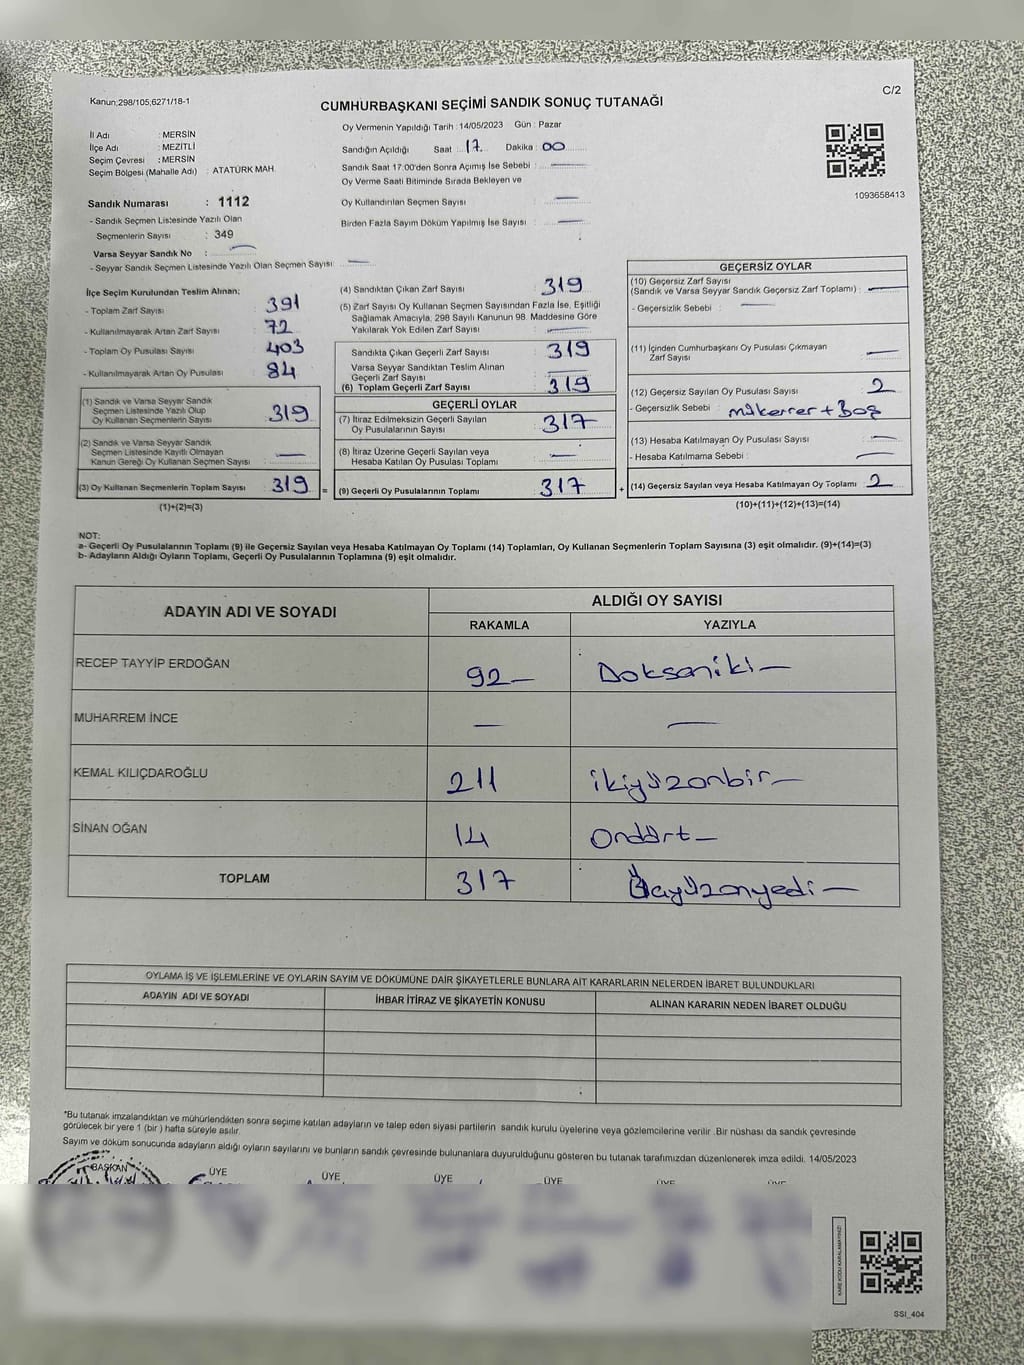 Kanun;298/105;6271/18-1
C/2
CUMHURBAŞKANI SEÇİMİ SANDIK SONUÇ TUTANAĞI
İl Adı : MERSİN
İlçe Adı : MEZİTLİ
Seçim Çevresi : MERSİN
Seçim Bölgesi (Mahalle Adı) : ATATÜRK MAH.
Sandık Numarası : 1112
- Sandık Seçmen Listesinde Yazılı Olan
Seçmenlerin Sayısı : 349
Varsa Seyyar Sandık No : —
- Seyyar Sandık Seçmen Listesinde Yazılı Olan Seçmen Sayısı : —
Oy Vermenin Yapıldığı Tarih : 14/05/2023 Gün : Pazar
Sandığın Açıldığı Saat : 17 Dakika : 00
Sandık Saat 17:00'den Sonra Açımış İse Sebebi : —
Oy Verme Saati Bitiminde Sırada Bekleyen ve
Oy Kullandırılan Seçmen Sayısı : —
Birden Fazla Sayım Döküm Yapılmış İse Sayısı : —
1093658413
İlçe Seçim Kurulundan Teslim Alınan;
- Toplam Zarf Sayısı : 391
- Kullanılmayarak Artan Zarf Sayısı : 72
- Toplam Oy Pusulası Sayısı : 403
- Kullanılmayarak Artan Oy Pusulası : 84
(1) Sandık ve Varsa Seyyar Sandık
Seçmen Listesinde Yazılı Olup
Oy Kullanan Seçmenlerin Sayısı : 319
(2) Sandık ve Varsa Seyyar Sandık
Seçmen Listesinde Kayıtlı Olmayan
Kanun Gereği Oy Kullanan Seçmen Sayısı : —
(3) Oy Kullanan Seçmenlerin Toplam Sayısı : 319 =
(1)+(2)=(3)
(4) Sandıktan Çıkan Zarf Sayısı : 319
(5) Zarf Sayısı Oy Kullanan Seçmen Sayısından Fazla İse, Eşitliği
Sağlamak Amacıyla, 298 Sayılı Kanunun 98. Maddesine Göre
Yakılarak Yok Edilen Zarf Sayısı : —
Sandıkta Çıkan Geçerli Zarf Sayısı : 319
Varsa Seyyar Sandıktan Teslim Alınan
Geçerli Zarf Sayısı : —
(6) Toplam Geçerli Zarf Sayısı : 319
GEÇERLİ OYLAR
(7) İtiraz Edilmeksizin Geçerli Sayılan
Oy Pusulalarının Sayısı : 317
(8) İtiraz Üzerine Geçerli Sayılan veya
Hesaba Katılan Oy Pusulası Toplamı : —
(9) Geçerli Oy Pusulalarının Toplamı : 317 +
GEÇERSİZ OYLAR
(10) Geçersiz Zarf Sayısı
(Sandık ve Varsa Seyyar Sandık Geçersiz Zarf Toplamı) : —
- Geçersizlik Sebebi : —
(11) İçinden Cumhurbaşkanı Oy Pusulası Çıkmayan
Zarf Sayısı : —
(12) Geçersiz Sayılan Oy Pusulası Sayısı : 2
- Geçersizlik Sebebi : mükerrer + Boş
(13) Hesaba Katılmayan Oy Pusulası Sayısı : —
- Hesaba Katılmama Sebebi : —
(14) Geçersiz Sayılan veya Hesaba Katılmayan Oy Toplamı : 2
(10)+(11)+(12)+(13)=(14)
NOT:
a- Geçerli Oy Pusulalarının Toplamı (9) ile Geçersiz Sayılan veya Hesaba Katılmayan Oy Toplamı (14) Toplamları, Oy Kullanan Seçmenlerin Toplam Sayısına (3) eşit olmalıdır. (9)+(14)=(3)
b- Adayların Aldığı Oyların Toplamı, Geçerli Oy Pusulalarının Toplamına (9) eşit olmalıdır.
ADAYIN ADI VE SOYADI
ALDIĞI OY SAYISI
RAKAMLA YAZIYLA
RECEP TAYYİP ERDOĞAN 92— Doksaniki—
MUHARREM İNCE — —
KEMAL KILIÇDAROĞLU 211 ikiyüzonbir—
SİNAN OĞAN 14 Ondört—
TOPLAM 317 Üçyüzonyedi—
OYLAMA İŞ VE İŞLEMLERİNE VE OYLARIN SAYIM VE DÖKÜMÜNE DAİR ŞİKAYETLERLE BUNLARA AİT KARARLARIN NELERDEN İBARET BULUNDUKLARI
ADAYIN ADI VE SOYADI İHBAR İTİRAZ VE ŞİKAYETİN KONUSU ALINAN KARARIN NEDEN İBARET OLDUĞU
*Bu tutanak imzalandıktan ve mühürlendikten sonra seçime katılan adayların ve talep eden siyasi partilerin sandık kurulu üyelerine veya gözlemcilerine verilir .Bir nüshası da sandık çevresinde
görülecek bir yere 1 (bir ) hafta süreyle asılır.
Sayım ve döküm sonucunda adayların aldığı oyların sayılarını ve bunların sandık çevresinde bulunanlara duyurulduğunu gösteren bu tutanak tarafımızdan düzenlenerek imza edildi. 14/05/2023
BAŞKAN ÜYE ÜYE ÜYE ÜYE ÜYE ÜYE
KARE KODU KARALAMAYINIZ!
SSI_404